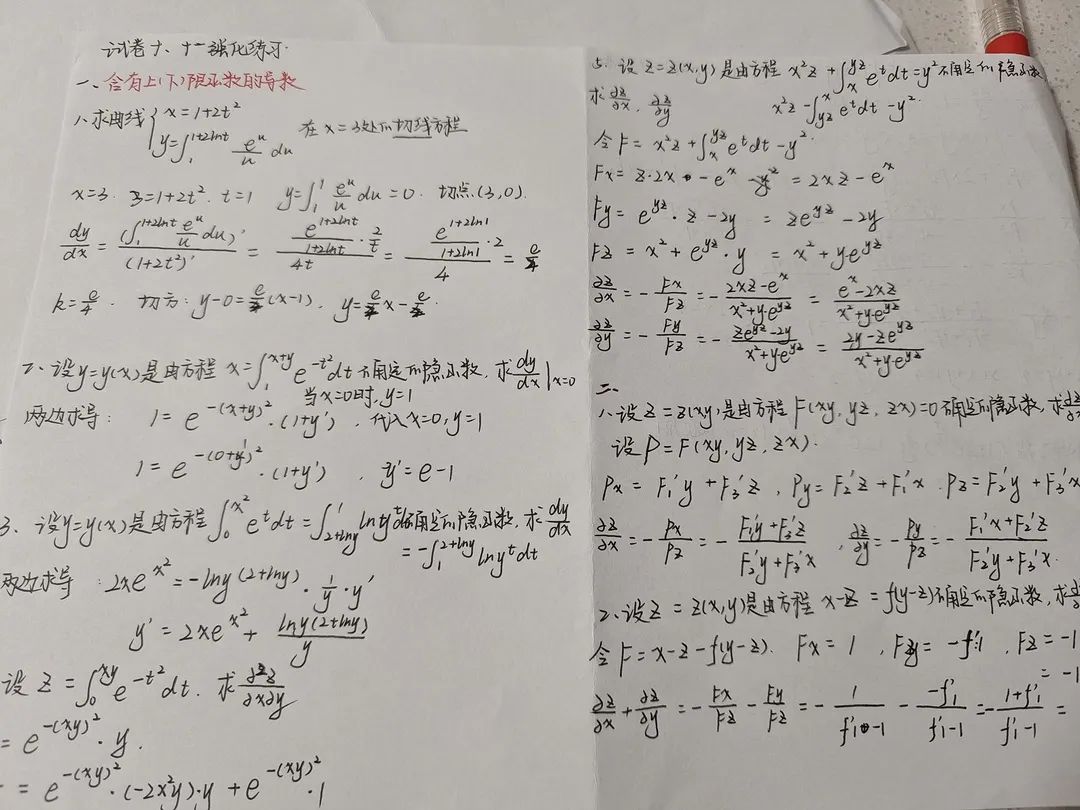 试卷十、十一强化练习.
一、含有上(下)限函数的导数
1.求曲线 { x=1+2t²
y=∫₁^{1+2lnt} e^u/u du 在x=3处的切线方程
x=3. 3=1+2t². t=1 y=∫₁¹ e^u/u du=0. 切点(3,0).
dy/dx = (∫₁^{1+2lnt} e^u/u du)'/(1+2t²)' = (e^{1+2lnt}/(1+2lnt)·2/t)/4t = (e^{1+2ln1}/(1+2ln1)·2)/4 = e/
k=e/4. 切方: y-0=e/ (x-1). y=e/ x-e/ .
2、设y=y(x)是由方程 x=∫₁^{x+y} e^{-t²}dt确定的隐函数,求dy/dx|x=0
当x=0时,y=1
两边求导: 1=e^{-(x+y)²}·(1+y'). 代入x=0,y=1
1=e^{-(0+1)²}·(1+y') y'=e-1
3、设y=y(x)是由方程∫₀^{x²}e^t dt=∫_{2+lny}^1 lny^t dt确定的隐函数,求dy/dx
=-∫₁^{2+lny} lny^t dt
两边求导: 2xe^{x²}=-lny(2+lny)·1/y·y'
y'=2xe^{x²}+ lny(2+lny)/y
设 z=∫₀^{xy}e^{-t²}dt. 求∂²z/∂x∂y
=e^{-(xy)²}·y.
=e^{-(xy)²}·(-2x²y)·y+e^{-(xy)²}·1
5. 设z=z(x,y)是由方程 x²z+∫ₓ^{yz}e^t dt=y²确定的隐函数
求∂z/∂x, ∂z/∂y x²z-∫_{yz}^x e^t dt-y².
令F=x²z+∫ₓ^{yz}e^t dt-y²
Fx=z·2x -e^x = 2xz-e^x
Fy=e^{yz}·z-2y = ze^{yz}-2y
Fz=x²+e^{yz}·y = x²+ye^{yz}
∂z/∂x=-Fx/Fz=-(2xz-e^x)/(x²+y·e^{yz})=(e^x-2xz)/(x²+y·e^{yz})
∂z/∂y=-Fy/Fz=-(ze^{yz}-2y)/(x²+ye^{yz})=(2y-ze^{yz})/(x²+y·e^{yz})
二、
1.设z=z(xy)是由方程F(xy,yz,zx)=0确定的隐函数,求
设P=F(xy,yz,zx).
Px=F₁'y+F₃'z, Py=F₂'z+F₁'x. Pz=F₂'y+F₃'x
∂z/∂x=-Px/Pz=-(F₁'y+F₃'z)/(F₂'y+F₃'x), ∂z/∂y=-Py/Pz=-(F₁'x+F₂'z)/(F₂'y+F₃'x).
2、设z=z(x,y)是由方程 x-z=f(y-z)确定的隐函数,求
令F=x-z-f(y-z). Fx=1, Fy=-f'1, Fz=-1
=-1
∂z/∂x+∂z/∂y=-Fx/Fz-Fy/Fz=-1/(f'₁-1)-(-f'₁)/(f'₁-1)=-(1+f'₁)/(f'₁-1)=